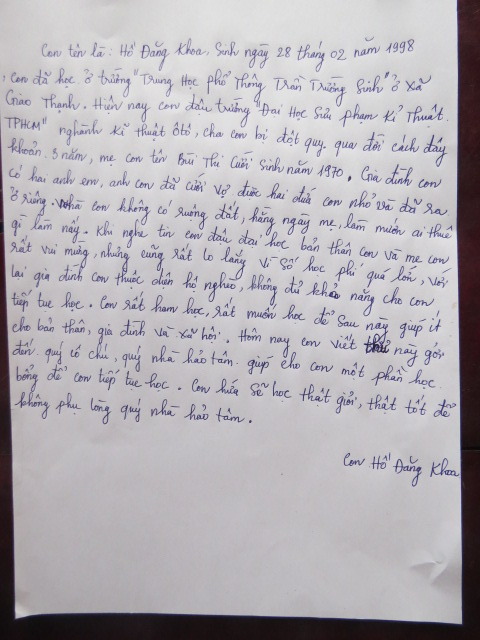 Con tên là: Hồ Đăng Khoa, Sinh ngày 28 tháng 02 năm 1998
, Con đã học ở trường "Trung Học phổ Thông Trần Trường Sinh" ở xã
Giao Thạnh. Hiện nay con đậu trường "Đại Học Sư phạm Kĩ Thuật
TPHCM" nghành Kĩ thuật Ôtô, cha con bị đột quỵ qua đời cách đây
khoản 3 năm, mẹ con tên Bùi Thị Cưới Sinh năm 1970. Gia đình con
có hai anh em, anh con đã cưới vợ được hai đứa con nhỏ và đã ra
ở riêng. Nhà con không có ruộng đất, hằng ngày mẹ, làm mướn ai thuê
gì làm nấy. Khi nghe tin con đậu đại học bản thân con và mẹ con
rất vui mừng, nhưng cũng rất lo lắng vì số học phí quá lớn, với
lại gia đình con thuộc diện hộ nghèo, không đủ khả năng cho con
tiếp tục học. Con rất ham học, rất muốn học để sau này giúp ít
cho bản thân, gia đình và xã hội. Hôm nay con viết thư này gởi
đến quý cô chú, quý nhà hảo tâm giúp cho con một phần học
bổng để con tiếp tục học. Con hứa sẽ học thật giỏi, thật tốt để
không phụ lòng quý nhà hảo tâm.
Con Hồ Đăng Khoa